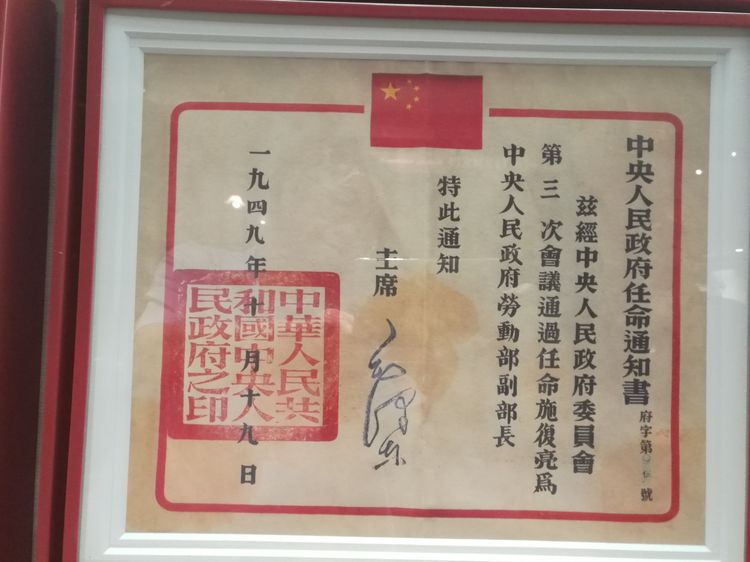 中央人民政府任命通知書
府字第 號
兹經中央人民政府委員會
第三次會議通過任命施復亮爲
中央人民政府勞動部副部長
特此通知
主席 毛澤東
一九四九年十月十九日
中華人民共
和國中央人
民政府之印